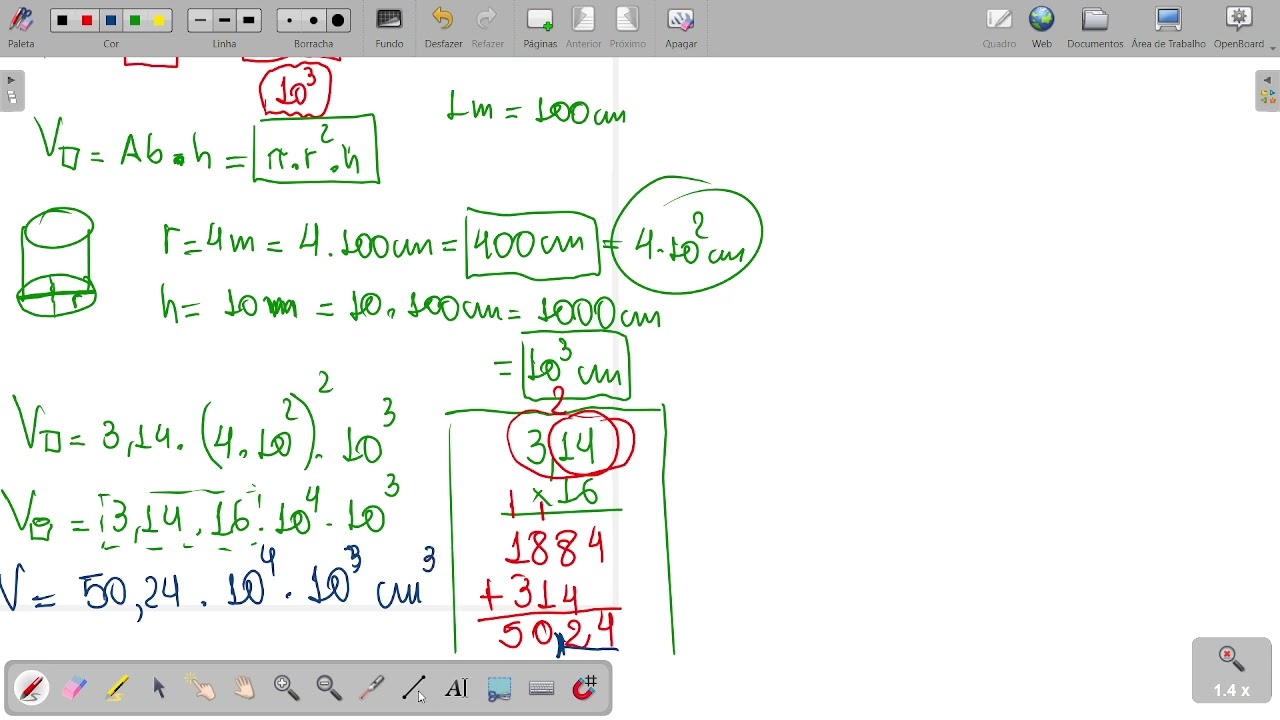 Paleta Cor Linha Borracha Fundo Desfazer Refazer Páginas Anterior Próximo Apagar Quadro Web Documentos Área de Trabalho OpenBoard
10³
1m = 100cm
V▯ = Ab . h = π.r².h
r = 4m = 4.100cm = 400cm = 4.10²cm
r
h = 10m = 10.100cm = 1000cm
= 10³cm
V▯ = 3,14.(4.10²)².10³
V▯ = 3,14.16.10⁴.10³
V = 50,24.10⁴.10³cm³
2
3,14
x16
1 1
1884
+314
50,24
1.4 x